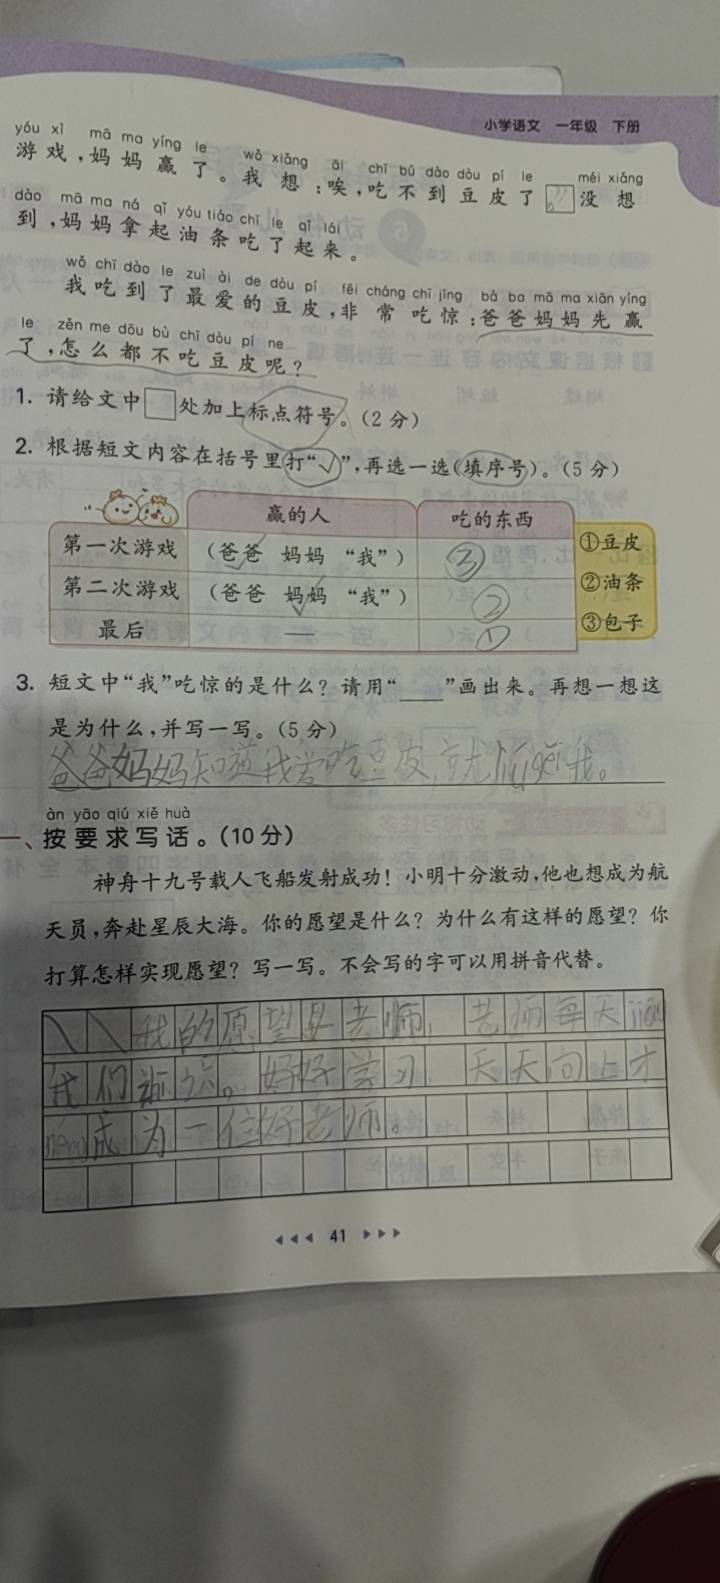 小学语文 一年级 下册
yóu xì mā ma yíng le wǒ xiǎng āi chī bú dào dòu pí le méi xiǎng
游戏,妈妈赢了。我想:唉,吃不到豆皮了 没想
dào mā ma ná qǐ yóu tiáo chī le qǐ lái
到,妈妈拿起油条吃了起来。
wǒ chī dào le zuì ài de dòu pí fēi cháng chī jīng bà ba mā ma xiān yíng
我吃到了最爱的豆皮,非常吃惊:爸爸妈妈先赢
le zěn me dōu bù chī dòu pí ne
了,怎么都不吃豆皮呢?
1. 请给文中□处加上标点符号。(2分)
2. 根据短文内容在括号里打“√”,再选一选(填序号)。(5分)
赢的人 吃的东西
第一次游戏 (爸爸 妈妈 “我”) ③ ①豆皮
第二次游戏 (爸爸 妈妈 “我”) ② ②油条
最后 — ① ③包子
3. 短文中“我”吃惊的是什么?请用“____”画出来。再想一想这
是为什么,并写一写。(5分)
爸爸妈妈知道我爱吃豆皮,就 我。
àn yāo qiú xiě huà
一、按要求写话。(10分)
神舟十九号载人飞船发射成功!小明十分激动,他也想成为航
天员,奔赴星辰大海。你的愿望是什么?为什么有这样的愿望?你
打算怎样实现愿望?写一写。不会写的字可以用拼音代替。
我的愿望是老师,老师每天jiāo
我们 。好好学习,天天向上才
néng成为一位好老师。
41